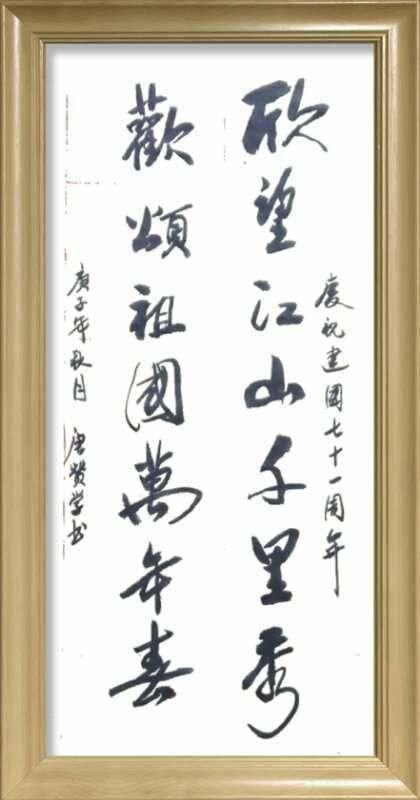 慶祝建國七十一周年
欣望江山千里秀
歡頌祖國萬年春
庚子年秋月 唐贊学书